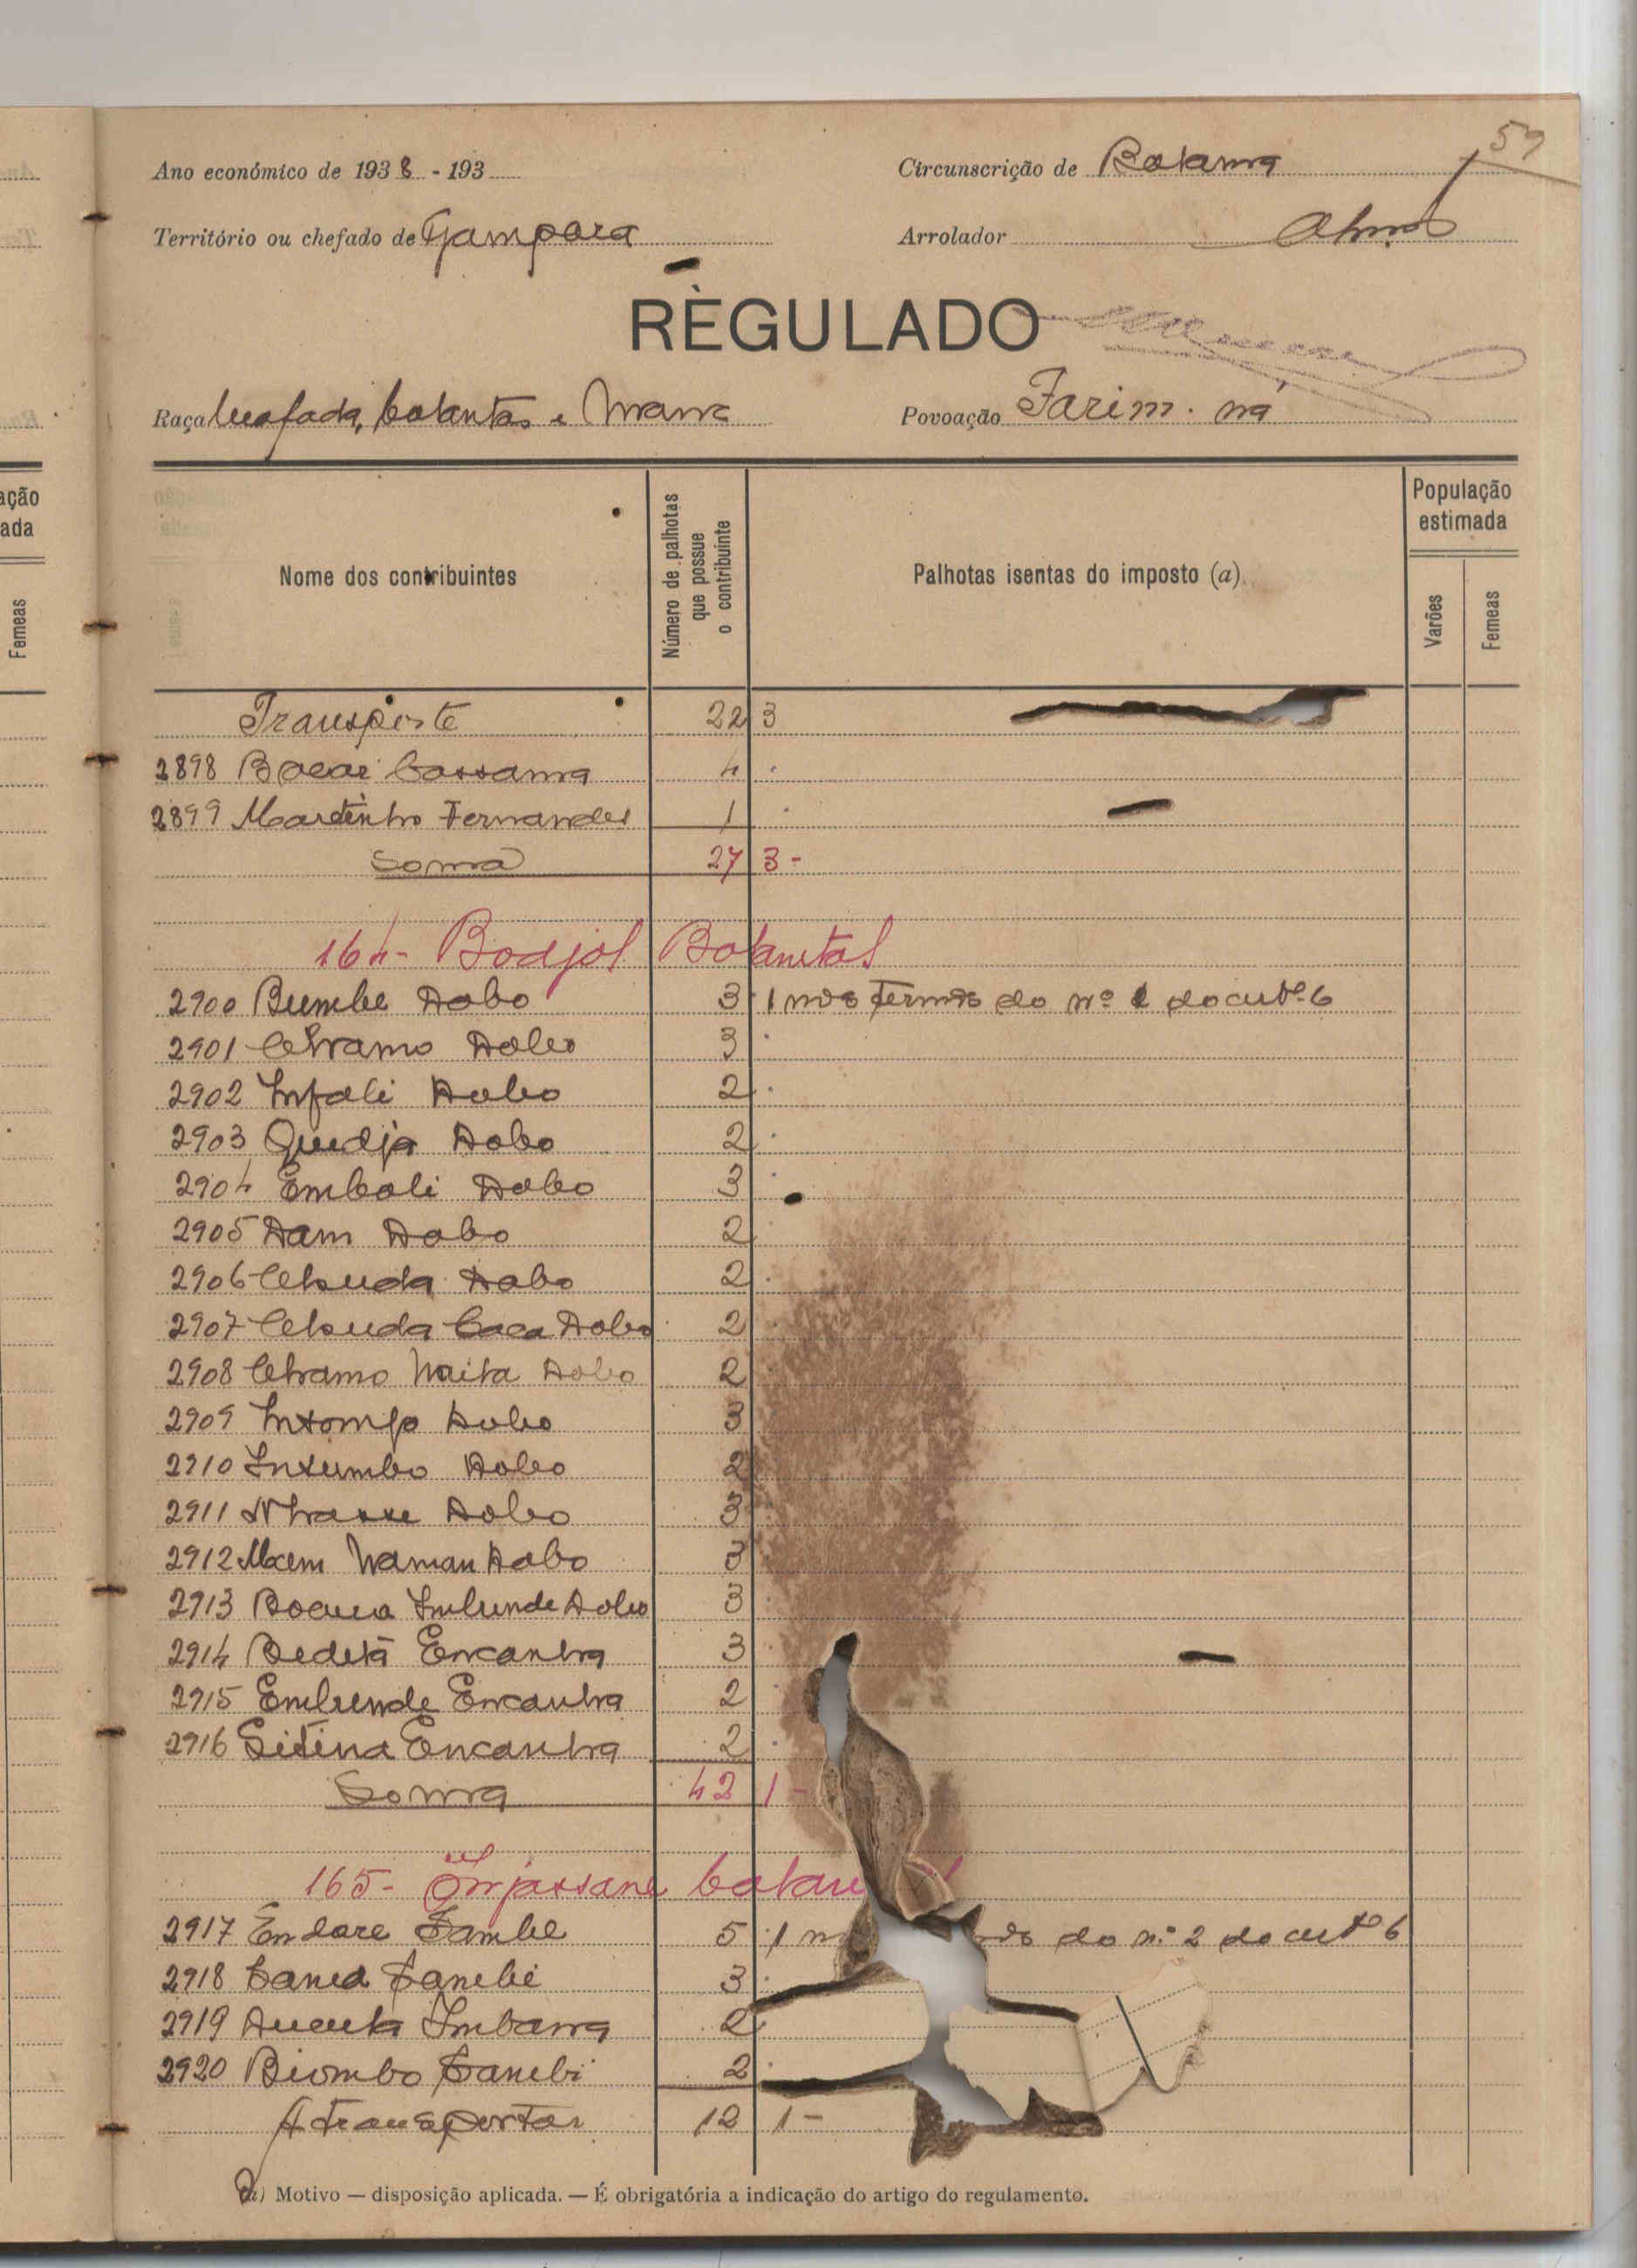 59
Ano económico de 1938 - 193
Circunscrição de Bolama
Território ou chefado de Gampara
Arrolador
RÈGULADO
Raça beafada, balantas e
Povoação Farim. na
ação
ada
Femeas
Nome dos contribuintes
Número de palhotas que possue o contribuinte
Palhotas isentas do imposto (a)
População estimada
Varões
Femeas
Transporte 22 3
2898 Bacar Cassama 4
2899 Martinho Fernandes 1
Soma 27 3 -
164- Bodjol Balantas
2900 Bumbe Dabo 3 1 nos termos do nº 2 do artº. 6
2901 Chramo Dabo 3
2902 Infali Dabo 2
2903 Quedja Dabo 2
2904 Embali Dabo 3
2905 Dam Dabo 2
2906 Dabo 2
2907 Dabo 2
2908 Chramo Naita Dabo 2
2909 Dabo 3
2910 Intumbo Dabo 2
2911 Nhasse Dabo 3
2912 Naman Dabo 3
2913 Dabo 3
2914 Bedetá Encanha 3
2915 Embunde Encanha 2
2916 Sitina Encanha 2
Soma 42 1 -
165- Injassane balan
2917 Endare 5 1 do n.º 2 do artº 6
2918 3
2919 Imbana 2
2920 Biombo 2
A transportar 12 1 -
(a) Motivo — disposição aplicada. — É obrigatória a indicação do artigo do regulamento.